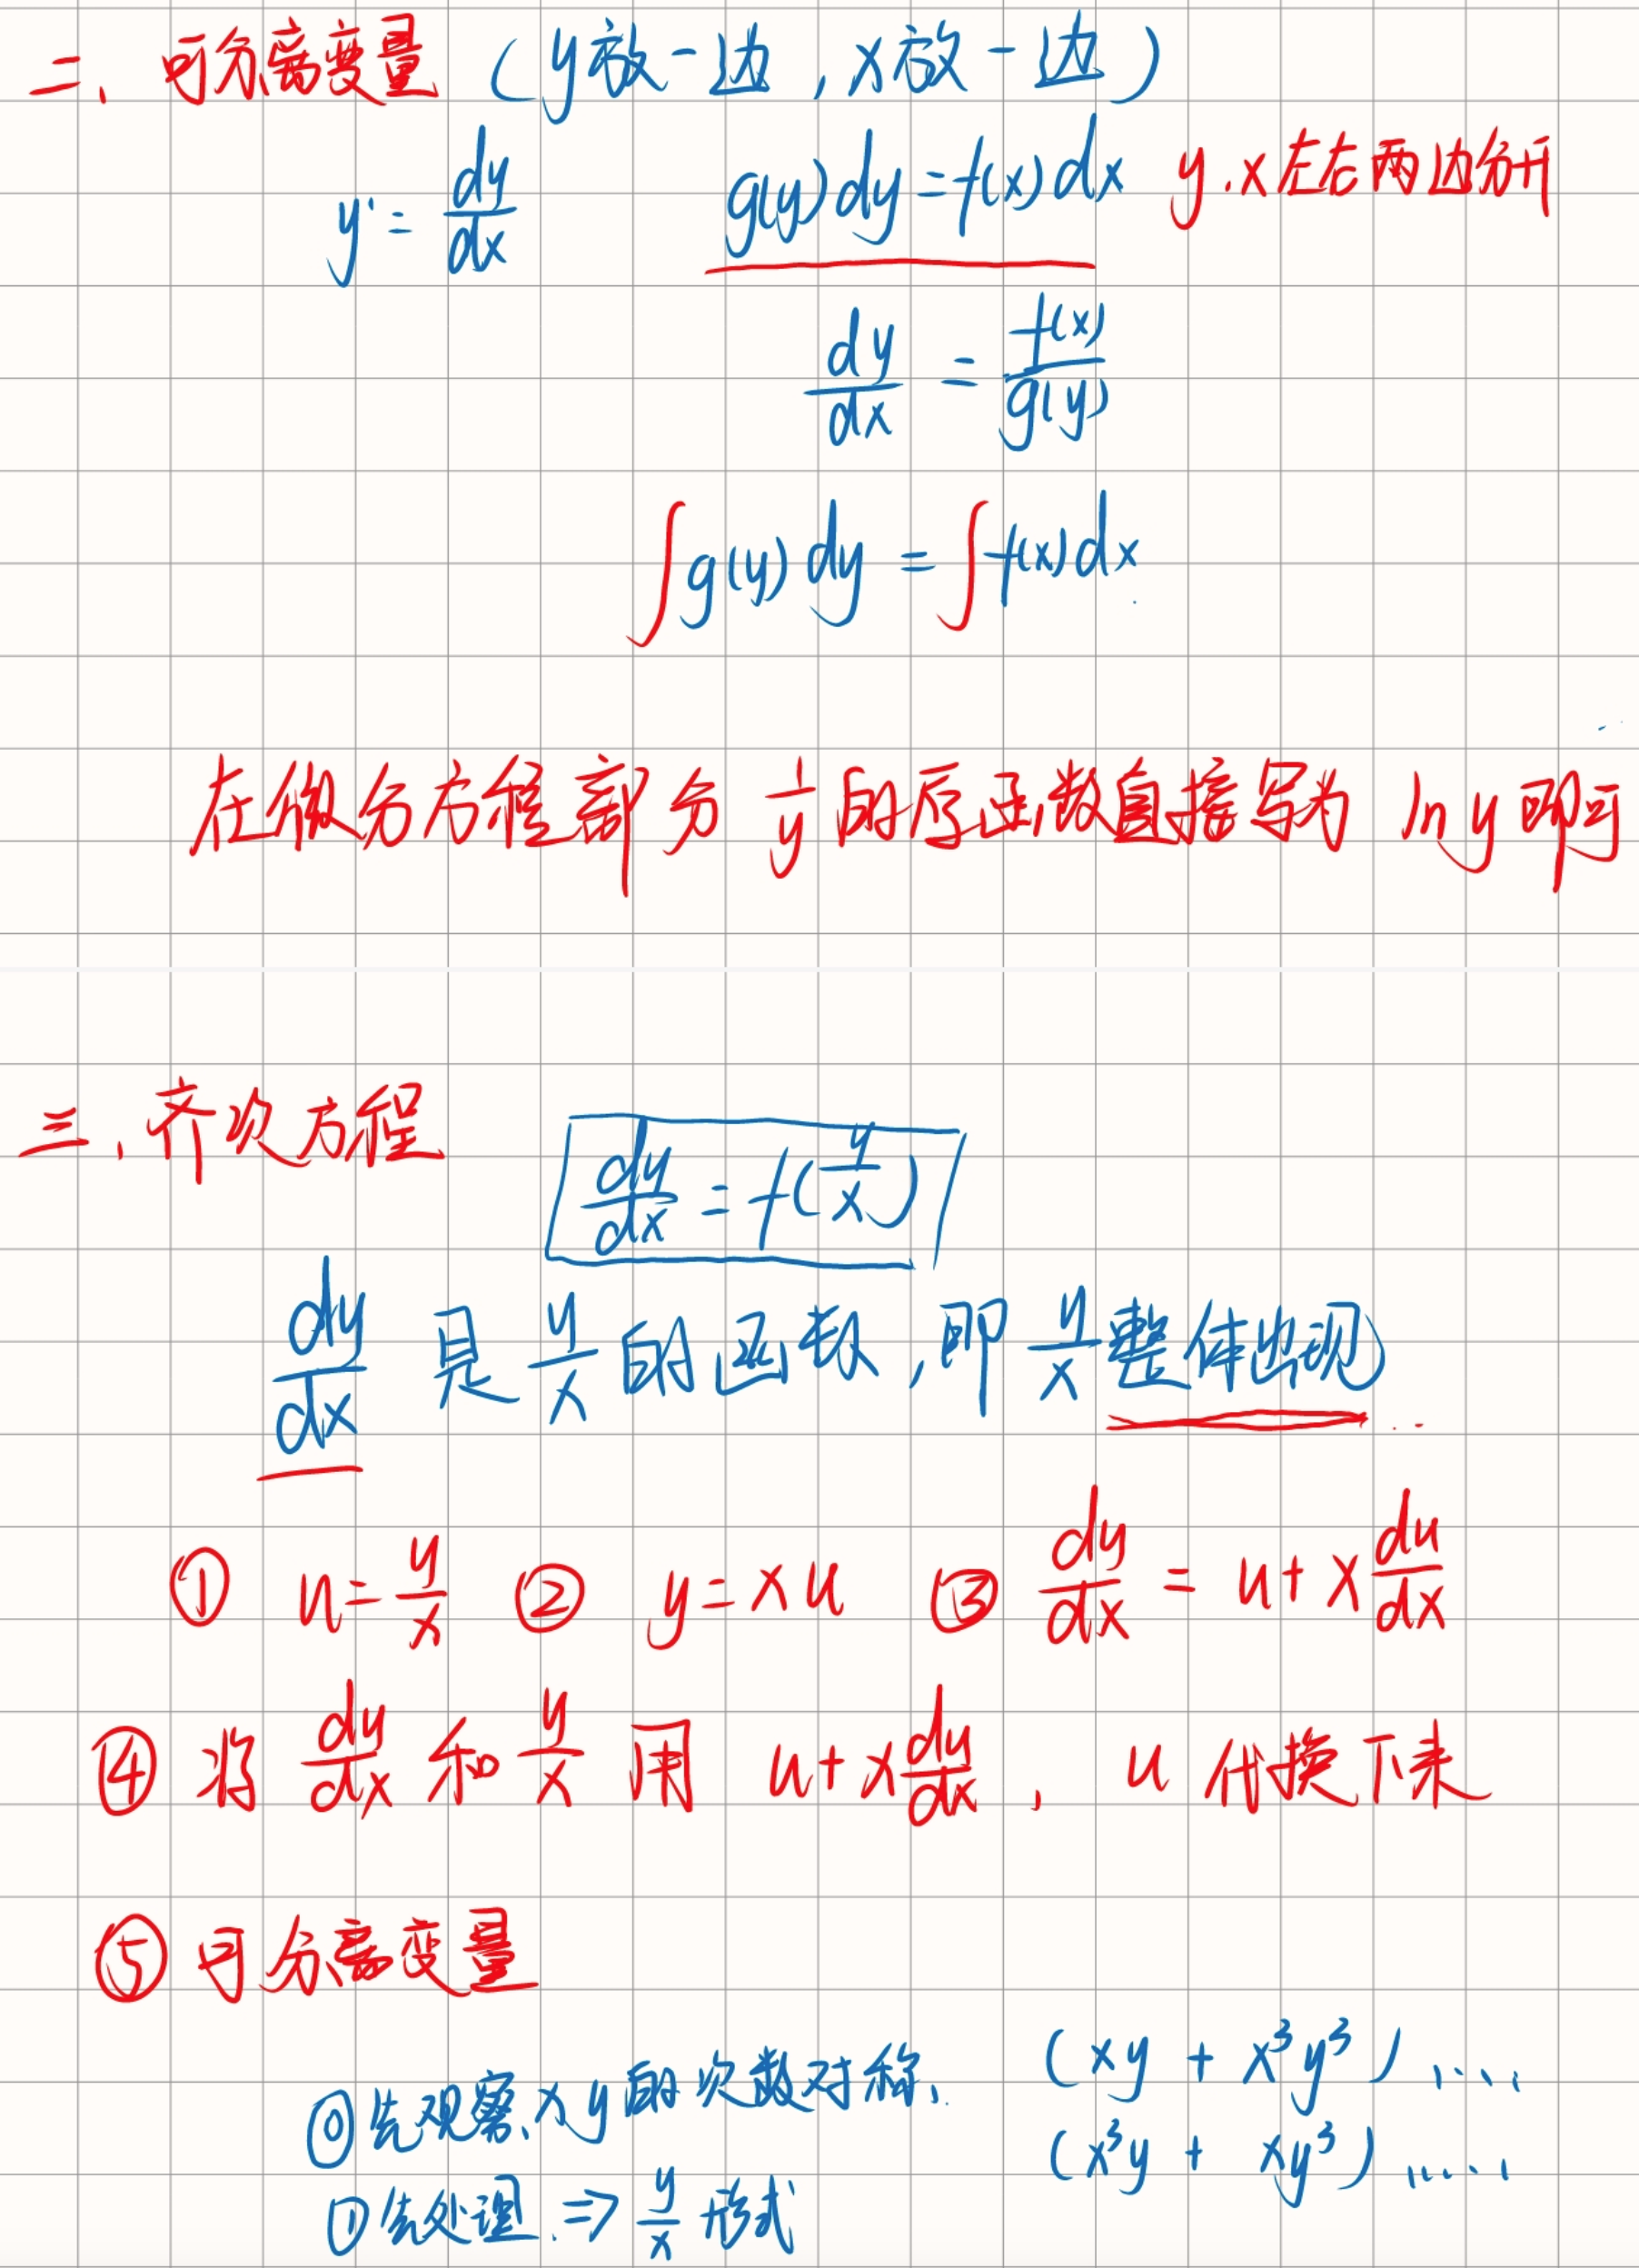 二、可分离变量（y放一边，x放一边）
y' = dy/dx   g(y)dy = f(x)dx   y.x左右两边分开
dy/dx = f(x)/g(y)
∫g(y)dy = ∫f(x)dx
在微分方程部分 1/y 的原函数直接写为 ln y 即可
三、齐次方程
dy/dx = f(y/x)
dy/dx 是 y/x 的函数，即 y/x 整体出现
① u = y/x ② y = xu ③ dy/dx = u + x du/dx
④ 将 dy/dx 和 y/x 用 u + x du/dx , u 代换下来
⑤ 可分离变量
⓪ 先观察 x y 的次数对称. (xy + x³y³) ....
(x³y + xy³) .....
① 先处理 ⇒ y/x 形式